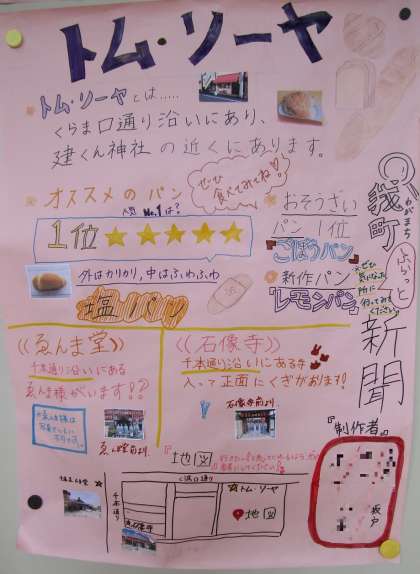 トム・ソーヤ
トム・ソーヤとは.....
くらま口通り沿いにあり、
建くん神社の近くにあります。
オススメのパン
ぜひ
食べてみてね!
人気No.1は?
1位
外はカリカリ、中はふわふわ
塩パン
おそうざい
パン1位
『ごぼうパン』
新作パン
『レモンパン』
我町
わがまち
ぶらっと
新聞
ぜひ
気になった
所に
行ってみて
ください
《ゑんま堂》
千本通り沿いにある
ゑんま様がいます!?
ゑんま堂前より
《石像寺》
千本通り沿いにある寺
入って正面にくぎがあります!
石像寺前より
『地図』
くらま口通り
千本通り
トム・ソーヤ
地図
石像寺
『制作者』
坂戸